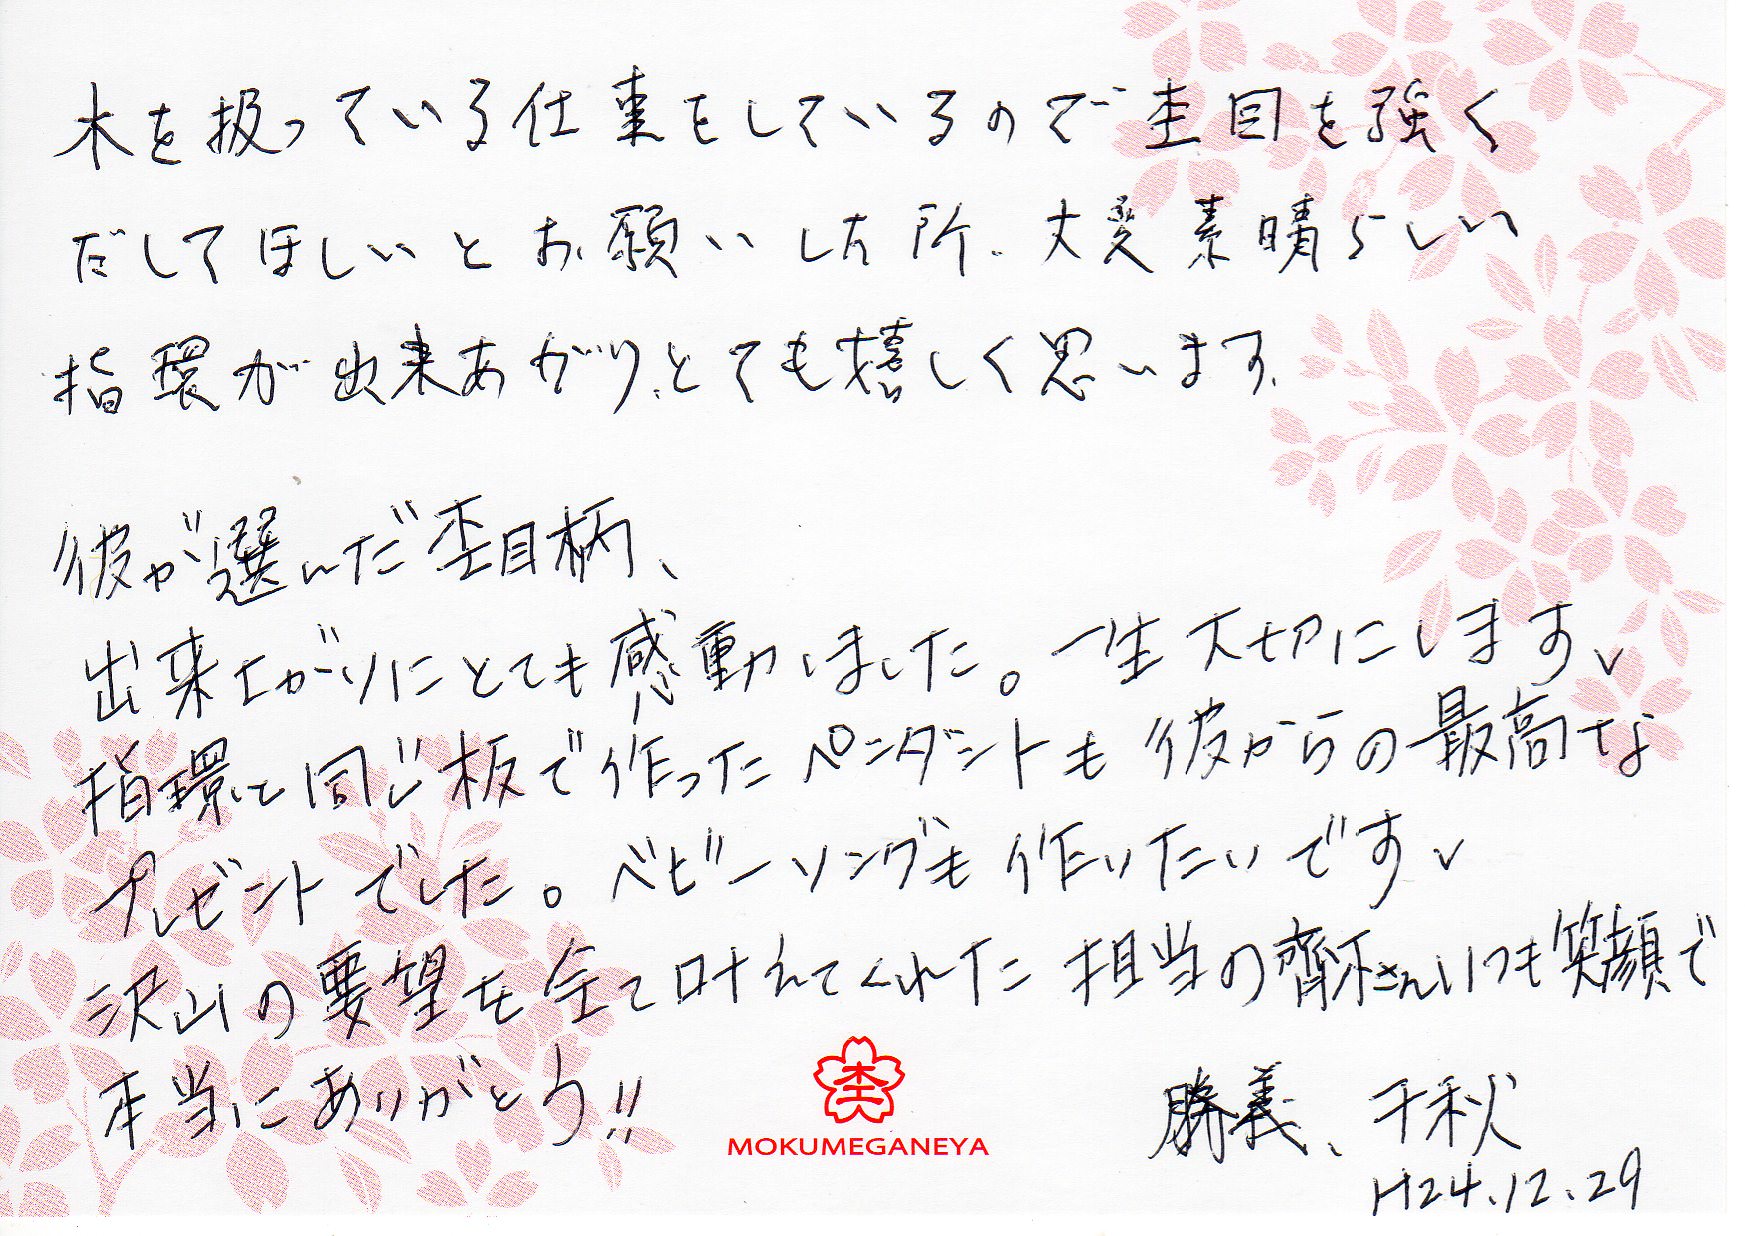 木を扱っている仕事をしているので杢目を強く
だしてほしいとお願いした所、大変素晴らしい
指環が出来あがり、とても嬉しく思います.
彼が選んだ杢目柄、
出来上がりにとても感動しました。一生大切にします、
指環と同じ板で作ったペンダントも彼からの最高な
プレゼントでした。ベビーリングも作りたいです、
沢山の要望を全て叶えてくれた担当の齊木さんいつも笑顔で
本当にありがとう!!
杢
MOKUMEGANEYA
勝義、千秋
H24.12.29